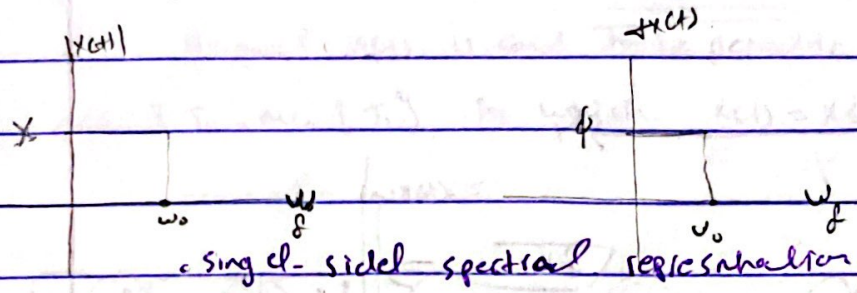 |x(t)| ∡x(t)
X ϕ
ω₀ ω ω₀ ω
f f
. singel-sidel spectrad represnhation